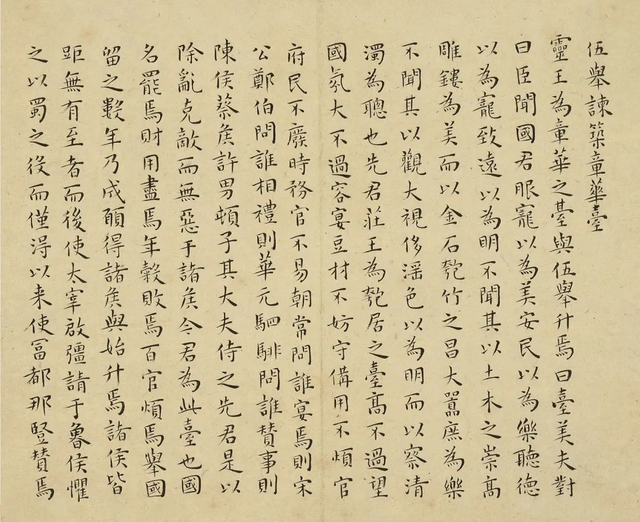 伍舉諫築章華臺
靈王為章華之臺與伍舉升焉曰臺美夫對
曰臣聞國君服寵以為美安民以為樂聽德
以為寵致遠以為明不聞其以土木之崇高
雕鏤為美而以金石匏竹之昌大嚣庶為樂
不聞其以觀大視侈淫色以為明而以察清
濁為聰也先君莊王為匏居之臺高不過望
國氛大不過容宴豆材不妨守備用不煩官
府民不廢時務官不易朝常問誰宴焉則宋
公鄭伯問誰相禮則華元駟騑問誰贊事則
陳侯蔡侯許男頓子其大夫侍之先君是以
除亂克敵而無惡于諸侯今君為此臺也國
名罷焉財用盡焉年穀敗焉百官煩焉舉國
留之數年乃成願得諸侯與始升焉諸侯皆
距無有至者而後使太宰啟彊請于魯侯懼
之以蜀之役而僅得以来使富都那豎贊焉